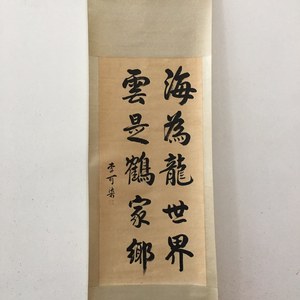 海為龍世界
雲是鶴家鄉
李可染